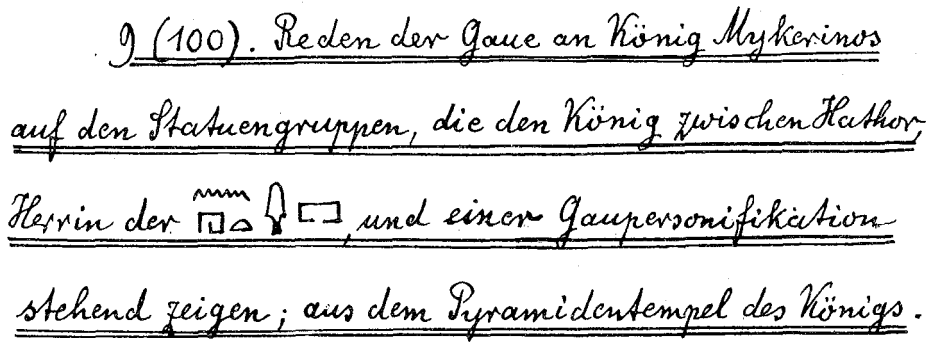 9 (100). Reden der Gaue an König Mykerinos
auf den Statuengruppen, die den König zwischen Hathor,
Herrin der 𓈖𓉔𓏏𓆭𓉐, und einer Gaupersonifikation
stehend zeigen; aus dem Pyramidentempel des Königs.